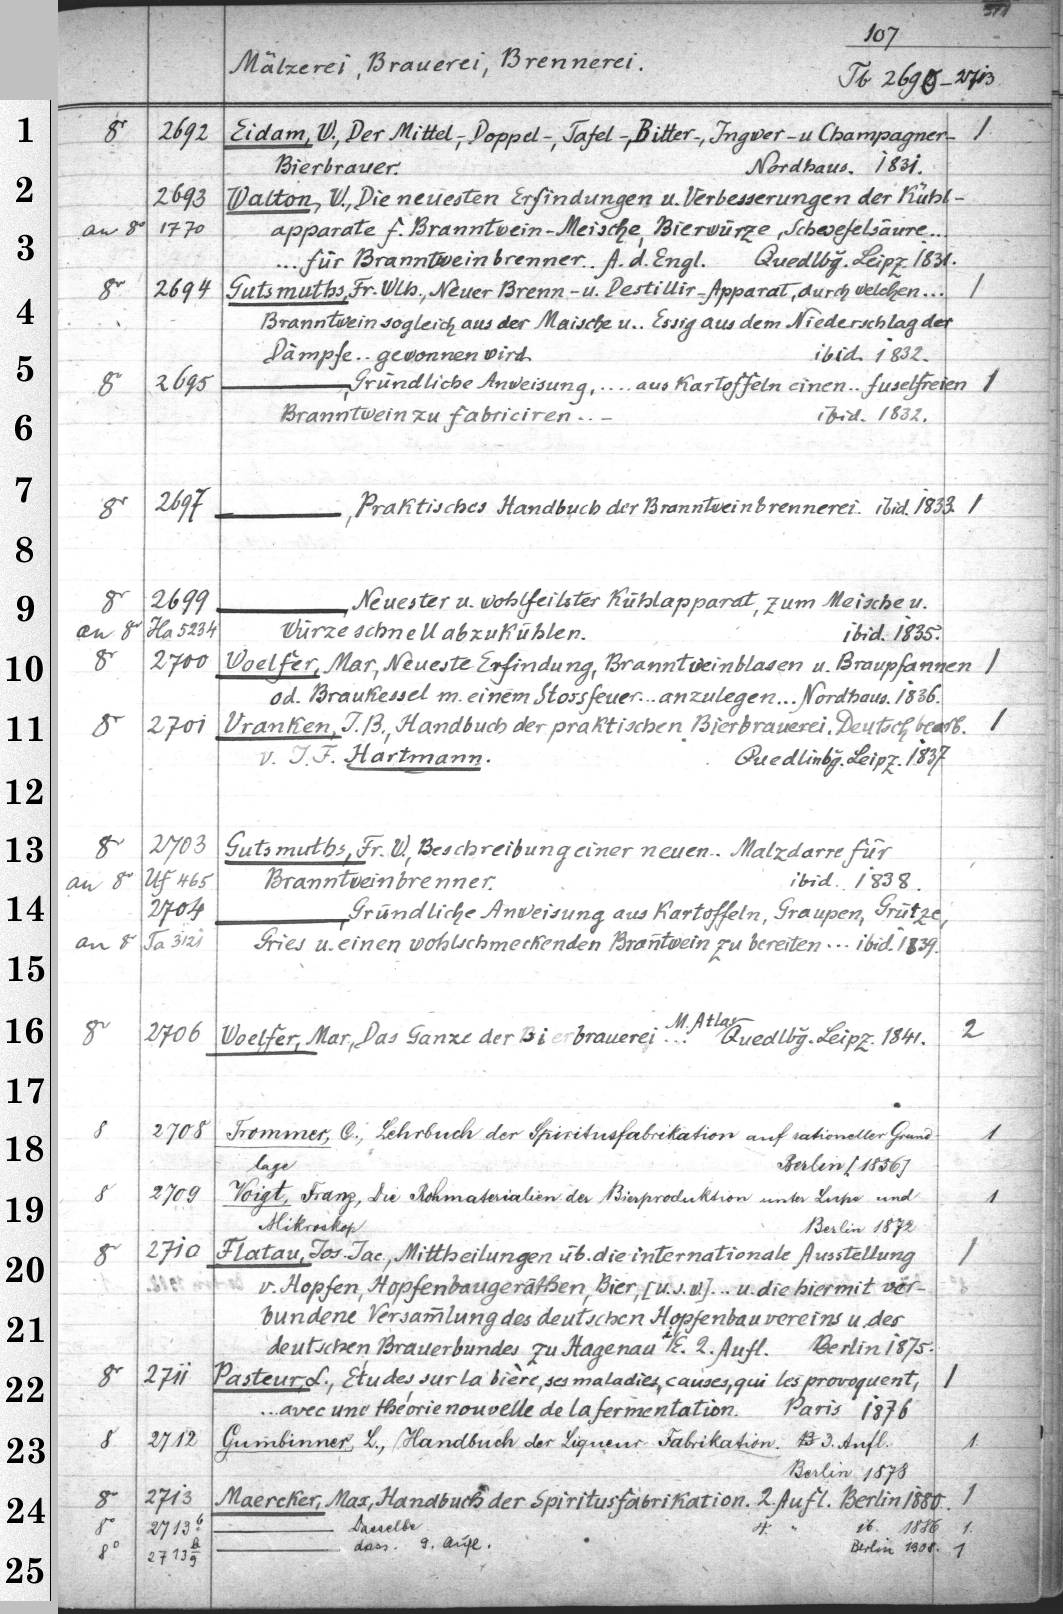 107
Mälzerei, Brauerei, Brennerei.
Tb 2690-2713
1 8° 2692 Eidam, W., Der Mittel-, Doppel-, Tafel-, Bitter-, Ingwer- u Champagner- 1
Bierbrauer. Nordhaus. 1831.
2 2693 Walton, W., Die neuesten Erfindungen u. Verbesserungen der Kühl-
an 8° 1770 apparate f. Branntwein-Meische, Bierwürze, Schwefelsäure...
3 ... für Branntweinbrenner.. A. d. Engl. Quedlbg. Leipz. 1831.
8° 2694 Gutsmuths, Fr. Wlh., Neuer Brenn- u. Destillir-Apparat, durch welchen... 1
4 Branntwein sogleich aus der Maische u.. Essig aus dem Niederschlag der
Dämpfe.. gewonnen wird ibid. 1832.
5 8° 2695 ———, Gründliche Anweisung, .... aus Kartoffeln einen.. fuselfreien 1
6 Branntwein zu fabriciren ..- ibid. 1832.
7 8° 2697 ———, Praktisches Handbuch der Branntweinbrennerei. ibid. 1833. 1
8
9 8° 2699 ———, Neuester u. wohlfeilster Kühlapparat, zum Meische u.
an 8° Ha 5234 Würze schnell abzukühlen. ibid. 1835.
10 8° 2700 Woelfer, Mar, Neueste Erfindung, Branntweinblasen u. Braupfannen 1
od. Braukessel m. einem Stossfeuer... anzulegen... Nordhaus. 1836.
11 8° 2701 Vranken, J. B., Handbuch der praktischen Bierbrauerei. Deutsch bearb. 1
v. J. F. Hartmann. Quedlinbg. Leipz. 1837
12
13 8° 2703 Gutsmuths, Fr. W., Beschreibung einer neuen.. Malzdarre für
an 8° Uf 465 Branntweinbrenner. ibid. 1838.
14 2704 ———, Gründliche Anweisung aus Kartoffeln, Graupen, Grütze,
an 8 Ta 3121 Gries u. einen wohlschmeckenden Bran̄twein zu bereiten ... ibid. 1839.
15
16 8° 2706 Woelfer, Mar, Das Ganze der Bierbrauerei ... M. Atlas Quedlbg. Leipz. 1841. 2
17
18 8 2708 Trommer, C., Lehrbuch der Spiritusfabrikation auf rationeller Grund- 1
lage Berlin [1856]
19 8 2709 Voigt, Franz, Die Rohmaterialien der Bierproduktion unter Lupe und 1
Mikroskop Berlin 1872
20 8° 2710 Flatau, Jos. Jac., Mittheilungen üb. die internationale Ausstellung 1
v. Hopfen, Hopfenbaugeräthen, Bier, [u.s.w.] ... u. die hiermit ver-
21 bundene Versam̄lung des deutschen Hopfenbauvereins u. des
deutschen Brauerbundes zu Hagenau i/E. 2. Aufl. Berlin 1875.
22 8° 2711 Pasteur, L., Etudes sur la bière, ses maladies, causes, qui les provoquent, 1
... avec une théorie nouvelle de la fermentation. Paris 1876
23 8 2712 Gumbinner, L., Handbuch der Liqueur-Fabrikation. 3. Aufl. 1
Berlin 1878
24 8° 2713 Maercker, Max, Handbuch der Spiritusfabrikation. 2. Aufl. Berlin 1880. 1
8° 2713 b ——— Dasselbe 4. " ib. 1886 1.
8° 2713 ——— dass. 9. Aufl. Berlin 1908. 1
25